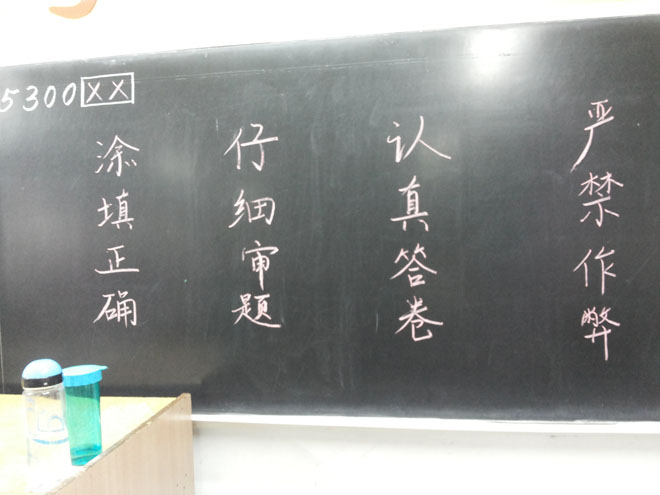 5300XX
严禁作弊
认真答卷
仔细审题
涂填正确